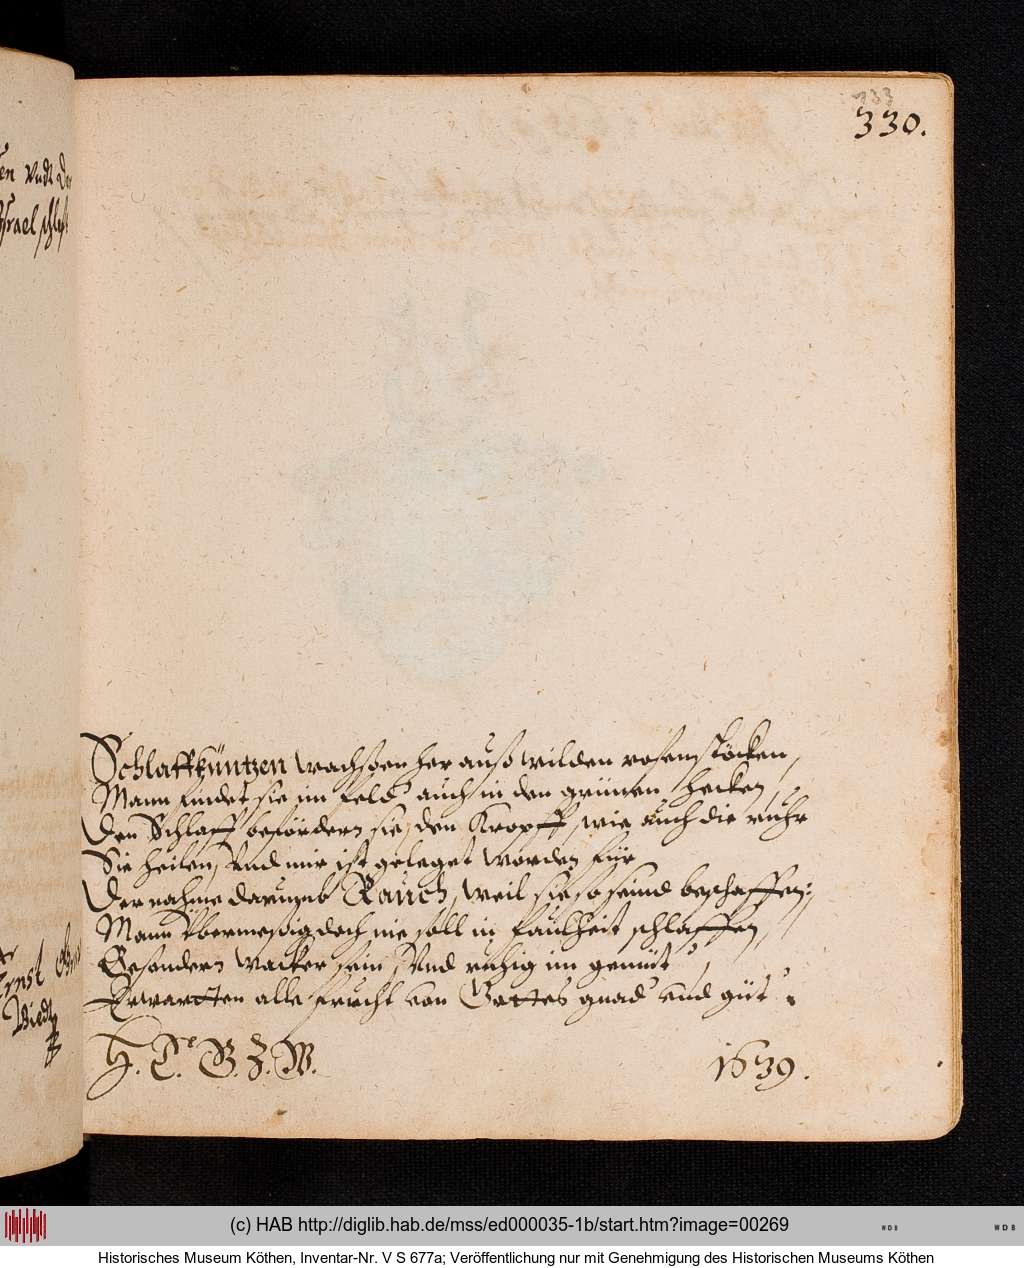 133
330.
en Vndt
Israel
Schlaffküntzen wachßen her auß wilden rosenstöcken,
Mann findet sie im feld auch in den grünen hecken,
Den Schlaff befördern sie, den Kropff, wie auch die ruhr
Sie heilen, Vnd mir ist geleget worden für
Der nahme darumb Rauch, weil sie so seind beschaffen:
Mann übermeßig doch nie soll in faulheit schlaffen,
Besondern wacker sein, Vnd ruhig im gemüt,
Erwartten alle frucht von Gottes gnad vnd güt.
Ernst
H. C. G. Z. W.
1639.
(c) HAB http://diglib.hab.de/mss/ed000035-1b/start.htm?image=00269
WDB
WDB
Historisches Museum Köthen, Inventar-Nr. V S 677a; Veröffentlichung nur mit Genehmigung des Historischen Museums Köthen